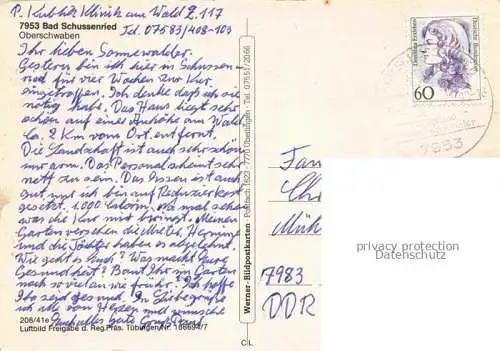 P. Kubhöß Klinik am Wald Z. 117
7953 Bad Schussenried
Tel. 07583/408-109
Oberschwaben
Ihr lieben Sonnewalder.
Gestern bin ich hier in Schussen-
ried für vier Wochen zur Kur
eingetroffen. Ich denke daß ich sie
nötig habe. Das Haus liegt sehr
schön auf einer Anhöhe am Wald
ca. 2 Km vom Ort entfernt.
Die Landschaft ist auch sehr schön
nur arm. Das Personal scheint sehr
nett zu sein. Das Essen ist auch
gut nur ich bin auf Reduzierkost
gesetzt. 1.000 Calorien, na mal sehen
was die Kur mir bringt. Meinen
Garten versehen die Mieter, Hermine
und die Töchter haben es abgelehnt.
Wie geht es Euch? Was macht Eure
Gesundheit? Baut Ihr im Garten
noch so viel an wie früher? Ich hoffe
Ihr seid gesund. In Liebe grüße
ich alle von Herzen und wünsche
Euch alles gute
208/41e
Luftbild Freigabe d. Reg.Präs. Tübingen Nr. 188694/7
Werner-Bildpostkarten · Postfach 1622 · 7770 Überlingen · Tel. 07551/2066
C/L
Deutsche Bundespost
60
7953
Fam
Chr
Müh
7983
DDR
privacy protection
Datenschutz